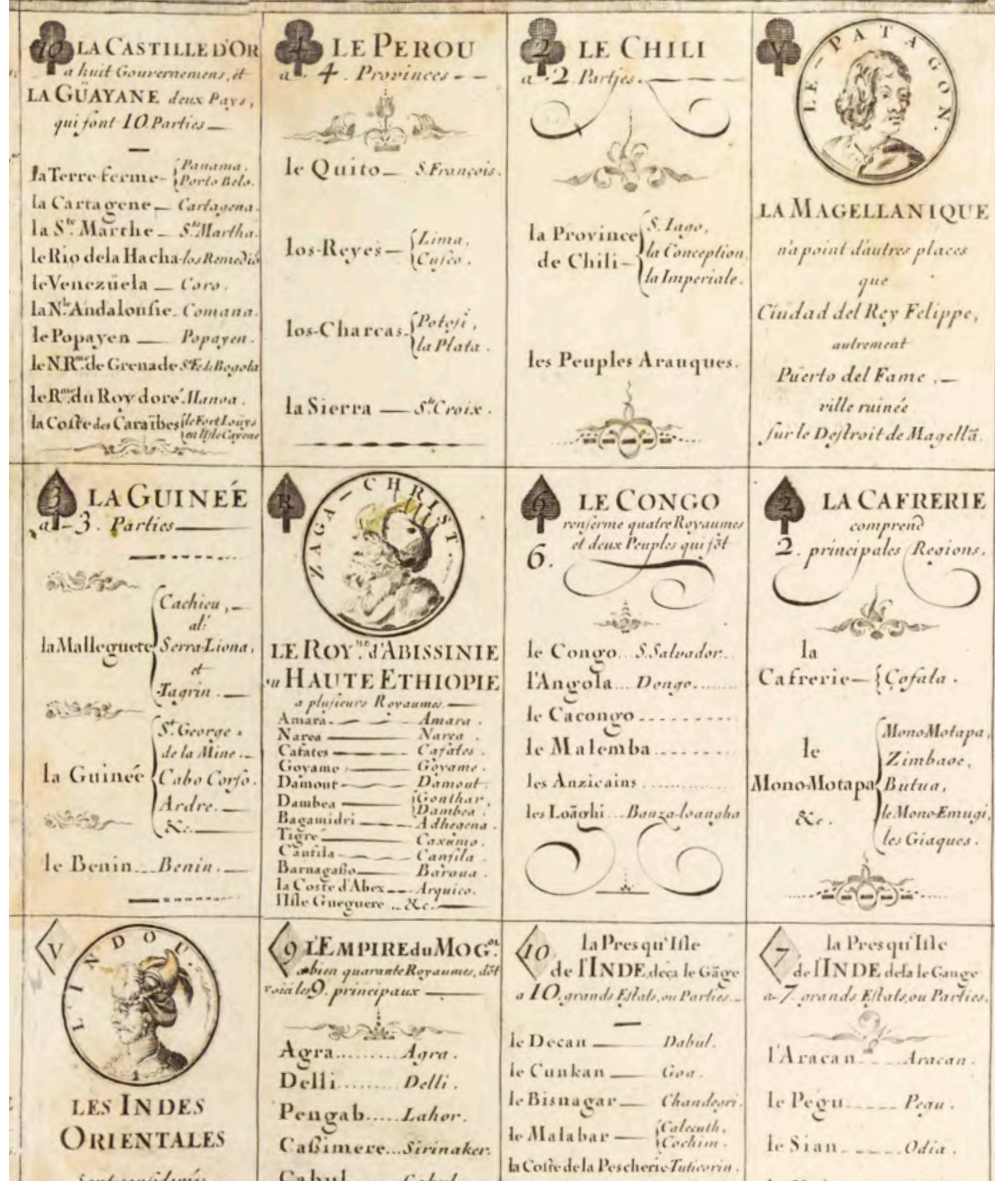 10 LA CASTILLE D'OR
a huit Gouvernemens, et
LA GÜAYANE deux Pays,
qui font 10 Parties
la Terre ferme - Panama, Porto Belo.
la Cartagene - Cartagena.
la S.te Marthe - S.ta Martha.
le Rio dela Hacha los Remediõ
le Venezüela - Coro.
la N.le Andalousie - Comana.
le Popayen - Popayen.
le N. R.me de Grenade S.te Fe de Bogota
le R.me du Roy doré Manoa.
la Coste des Caraïbes le Fort Louys en l'Isle Cayene
4 LE PEROU
a 4. Provinces
le Quito - S. François.
los-Reyes - Lima, Cusco.
los-Charcas - Potosi, la Plata.
la Sierra - S.te Croix.
2 LE CHILI
a 2 Parties.
la Province de Chili - S. Iago, la Conception, la Imperiale.
les Peuples Arauques.
V
LE - PATAGON.
LA MAGELLANIQUE
n'a point d'autres places
que
Ciudad del Rey Felippe,
autrement
Puerto del Fame,
ville ruinée
sur le Destroit de Magellã.
3 LA GUINEÉ
a - 3. Parties
la Malleguete - Cachieu, al: Serra-Liona, et Tagrin.
la Guineé - S.t George de la Mine, Cabo Corso. Ardre. &c.
le Benin - Benin.
R
ZAGA - CHRIST.
LE ROY.me d'ABISSINIE
ou HAUTE ETHIOPIE
a plusieurs Royaumes.
Amara - Amara.
Narea - Narea.
Cafates - Cafates.
Goyame - Goyame.
Damout - Damout.
Dambea - Gonthar, Dambea.
Bagamidri - Adhegena.
Tigré - Caxumo.
Canfila - Canfila.
Barnagaßo - Baroua.
la Coste d'Abex - Arquico.
l'Isle Gueguere - &c.
6 LE CONGO
renferme quatre Royaumes
et deux Peuples qui fõt
6.
le Congo - S. Salvador.
l'Angola - Dongo.
le Cacongo
le Malemba
les Anzicains
les Loãghi - Banza-loangha
2 LA CAFRERIE
comprend
2. principales Regions.
la Cafrerie - Çofala.
le Mono-Motapa &c. - Mono-Motapa, Zimbaoe, Butua, le Mono-Emugi, les Giaques.
V
L'INDOU.
LES INDES
ORIENTALES
9 L'EMPIRE du MOG.ol
a bien quarante Royaumes, dõt
voici les 9. principaux
Agra - Agra.
Delli - Delli.
Pengab - Lahor.
Caßimere - Sirinaker.
Cabul - Cabul
10 la Presqu'Isle
de l'INDE deça le Gãge
a 10. grands Estats, ou Parties.
le Decan - Dabul.
le Cunkan - Goa.
le Bisnagar - Chandegri.
le Malabar - Calecuth, Cochim.
la Coste de la Pescherie Tuticorin.
7 la Presqu'Isle
de l'INDE dela le Gange
a 7. grands Estats, ou Parties.
l'Aracan - Aracan.
le Pegu - Pegu.
le Sian - Odia.